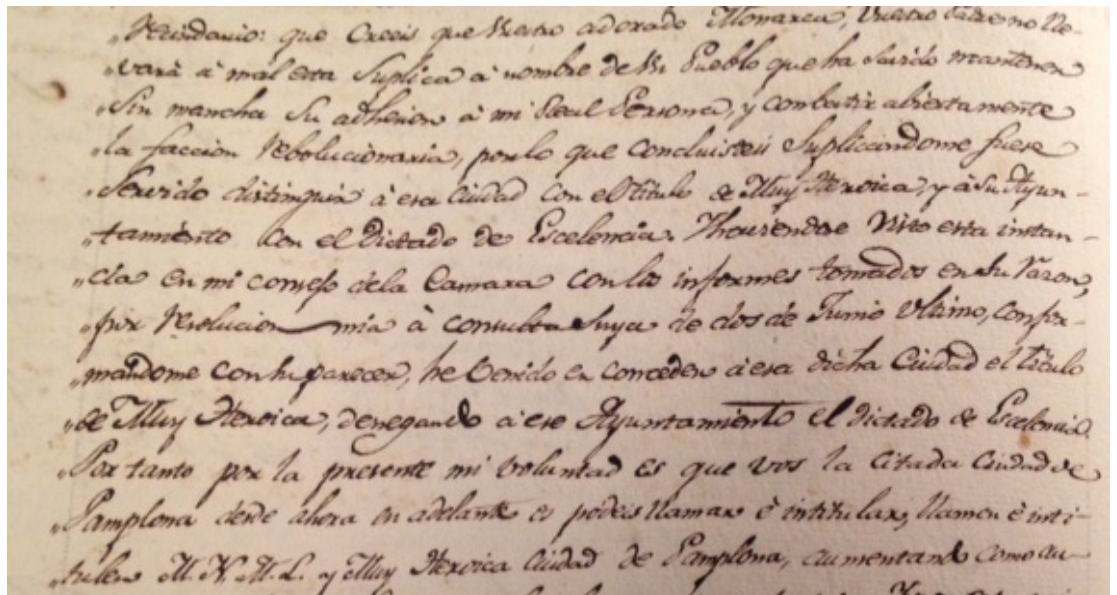 „Vecindario: que Creeis que Vuestro adorado Monarca, Vuestro Padre no lle-
„vará á mal esta Suplica á nombre de Un Pueblo que ha Savido mantener
„Sin mancha Su adhesion á mi Real Persona, y combatir abiertamente
„la faccion rebolucionaria, por lo que Concluisteis Suplicandome fuese
„Servido distinguir á esa Ciudad con el Titulo de Muy Heroica, y á Su Ayun-
„tamiento con el Dictado de Escelencia. Y haviendose Visto esta instan-
„cia en mi consejo de la Camara con los informes tomados en Su razon,
„por resolucion mia á consulta Suya de dos de Junio Ultimo, confor-
„mandome con Su parecer, he Venido en Conceder á esa dicha Ciudad el titulo
„de Muy Heroica, denegando á ese Ayuntamiento el Dictado de Escelencia.
„Por tanto por la presente mi voluntad es que vos la Citada Ciudad de
„Pamplona desde ahora en adelante os podeis llamar é intitular, llamen é inti-
„tulen M. N. M. L. y Muy Heroica Ciudad de Pamplona, aumentando como au-